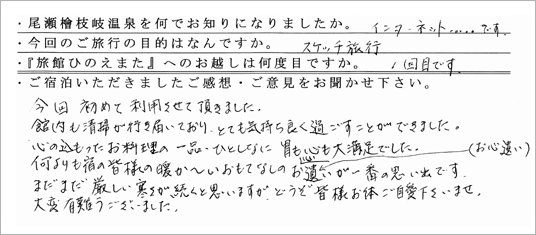 ・尾瀬檜枝岐温泉を何でお知りになりましたか。 インターネット.....です.
・今回のご旅行の目的はなんですか。 スケッチ旅行
・『旅館ひのえまた』へのお越しは何度目ですか。 1回目です.
・ご宿泊いただきましたご感想・ご意見をお聞かせ下さい。
今回 初めて 利用させて頂きました.
館内も清掃が行き届いており、とても気持ち良く過ごすことができました。
心の込もったお料理の一品、ひとしなに 胃も心も大満足でした。 (お心遣い)
何よりも宿の皆様の暖か〜いおもてなしのお遣いが一番の思い出です.
まだまだ 厳しい寒さが続くと思いますが、どうぞ皆様お体ご自愛下さいませ.
大変有難うございました。